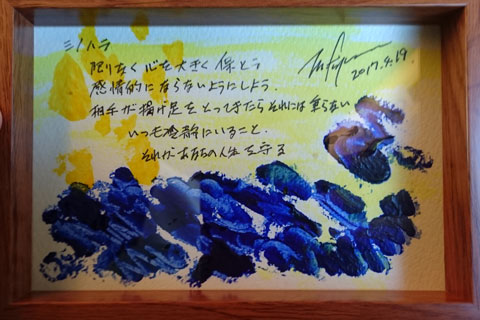 ミノハラ
限りなく心を大きく保とう
感情的にならないようにしよう.
相手が揚げ足をとってきたらそれには乗らない
いつも冷静にいること.
それがあなたの人生を守る
2017.9.19.